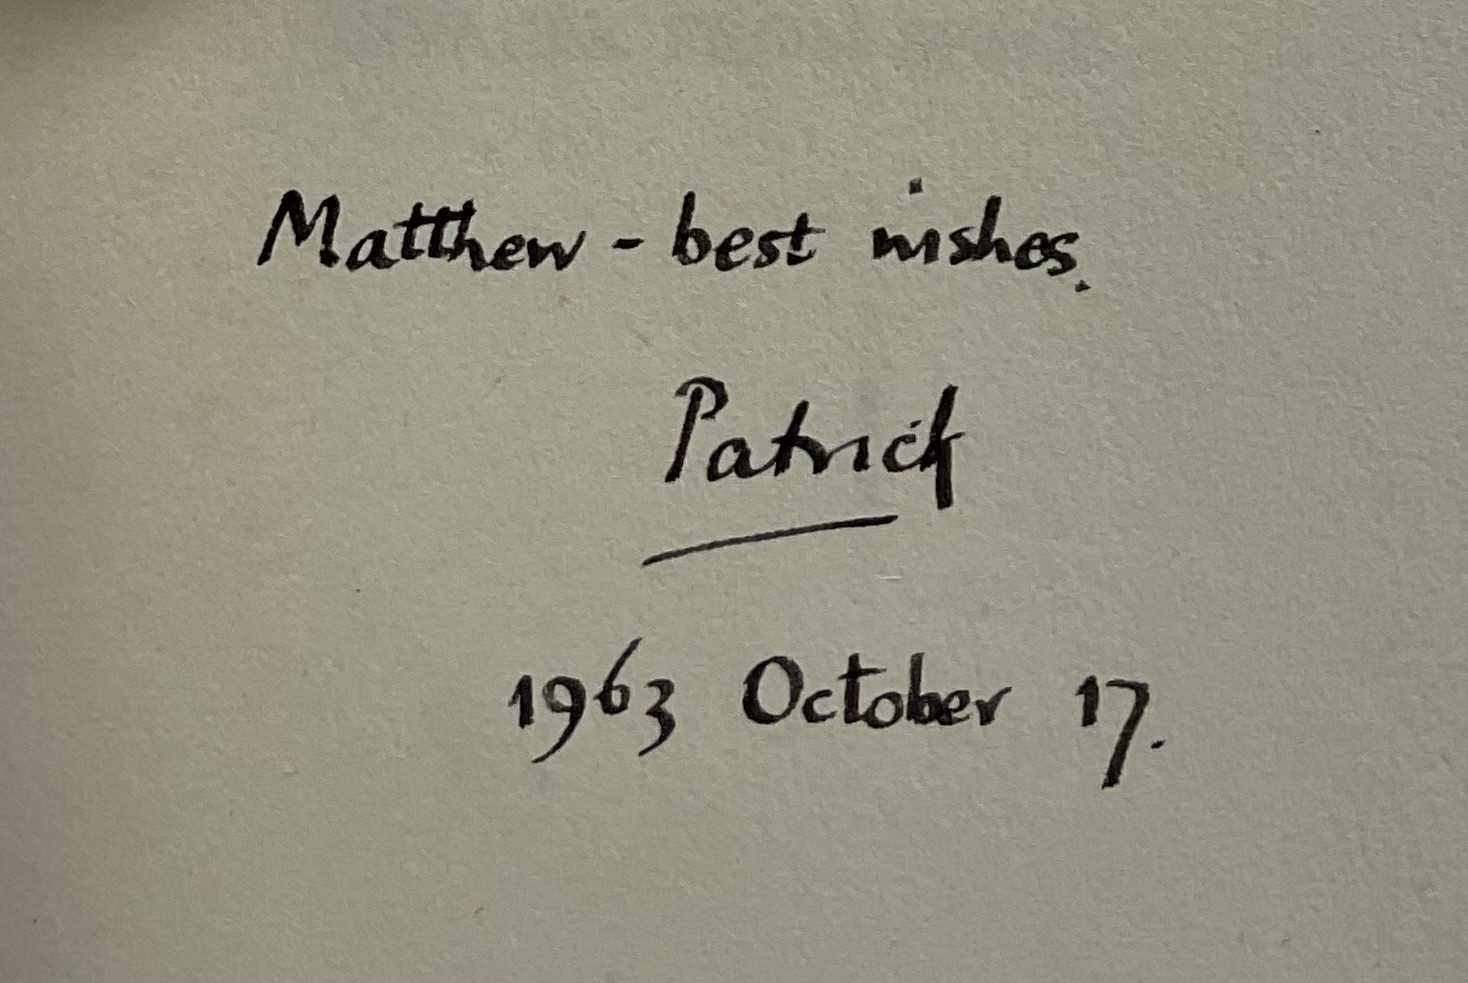 Matthew - best wishes.
Patrick
1963 October 17.